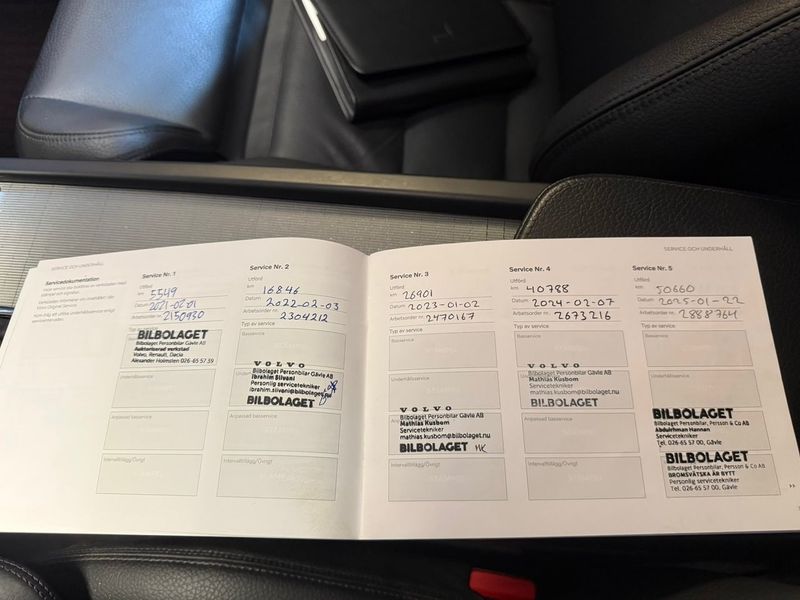 SERVICE OCH UNDERHÅLL
Servicedokumentation
Service Nr. 1
Utförd
km 5549
Datum 2021-02-01
Arbetsorder nr. 2150930
BILBOLAGET
Bilbolaget Personbilar Gävle AB
Auktoriserad verkstad
Volvo, Renault, Dacia
Alexander Holmsten 026-65 57 39
Underhållsservice
Anpassad basservice
Intervalltillägg/Övrigt
Service Nr. 2
Utförd
km 16846
Datum 2022-02-03
Arbetsorder nr. 2304212
Typ av service
Basservice
VOLVO
Bilbolaget Personbilar Gävle AB
Ibrahim Slivani
Personlig servicetekniker
ibrahim.slivani@bilbolaget.nu
BILBOLAGET
Anpassad basservice
Intervalltillägg/Övrigt
SERVICE OCH UNDERHÅLL
Service Nr. 3
Utförd
km 26901
Datum 2023-01-02
Arbetsorder nr. 2470167
Typ av service
Basservice
Underhållsservice
VOLVO
Bilbolaget Personbilar Gävle AB
Mathias Kusbom
Servicetekniker
mathias.kusbom@bilbolaget.nu
BILBOLAGET MK
Intervalltillägg/Övrigt
Service Nr. 4
Utförd
km 40788
Datum 2024-02-07
Arbetsorder nr. 2673216
Typ av service
Basservice
VOLVO
Bilbolaget Personbilar Gävle AB
Mathias Kusbom
Servicetekniker
mathias.kusbom@bilbolaget.nu
BILBOLAGET
Anpassad basservice
Intervalltillägg/Övrigt
Service Nr. 5
Utförd
km 50660
Datum 2025-01-22
Arbetsorder nr. 2888764
Typ av service
Basservice
Underhållsservice
BILBOLAGET
Bilbolaget Personbilar, Persson & Co AB
Abdulrhman Hannan
Servicetekniker
Tel. 026-65 57 00, Gävle
BILBOLAGET
Bilbolaget Personbilar, Persson & Co AB
BROMSVÄTSKA ÄR BYTT
Personlig servicetekniker
Tel. 026-65 57 00, Gävle
>>